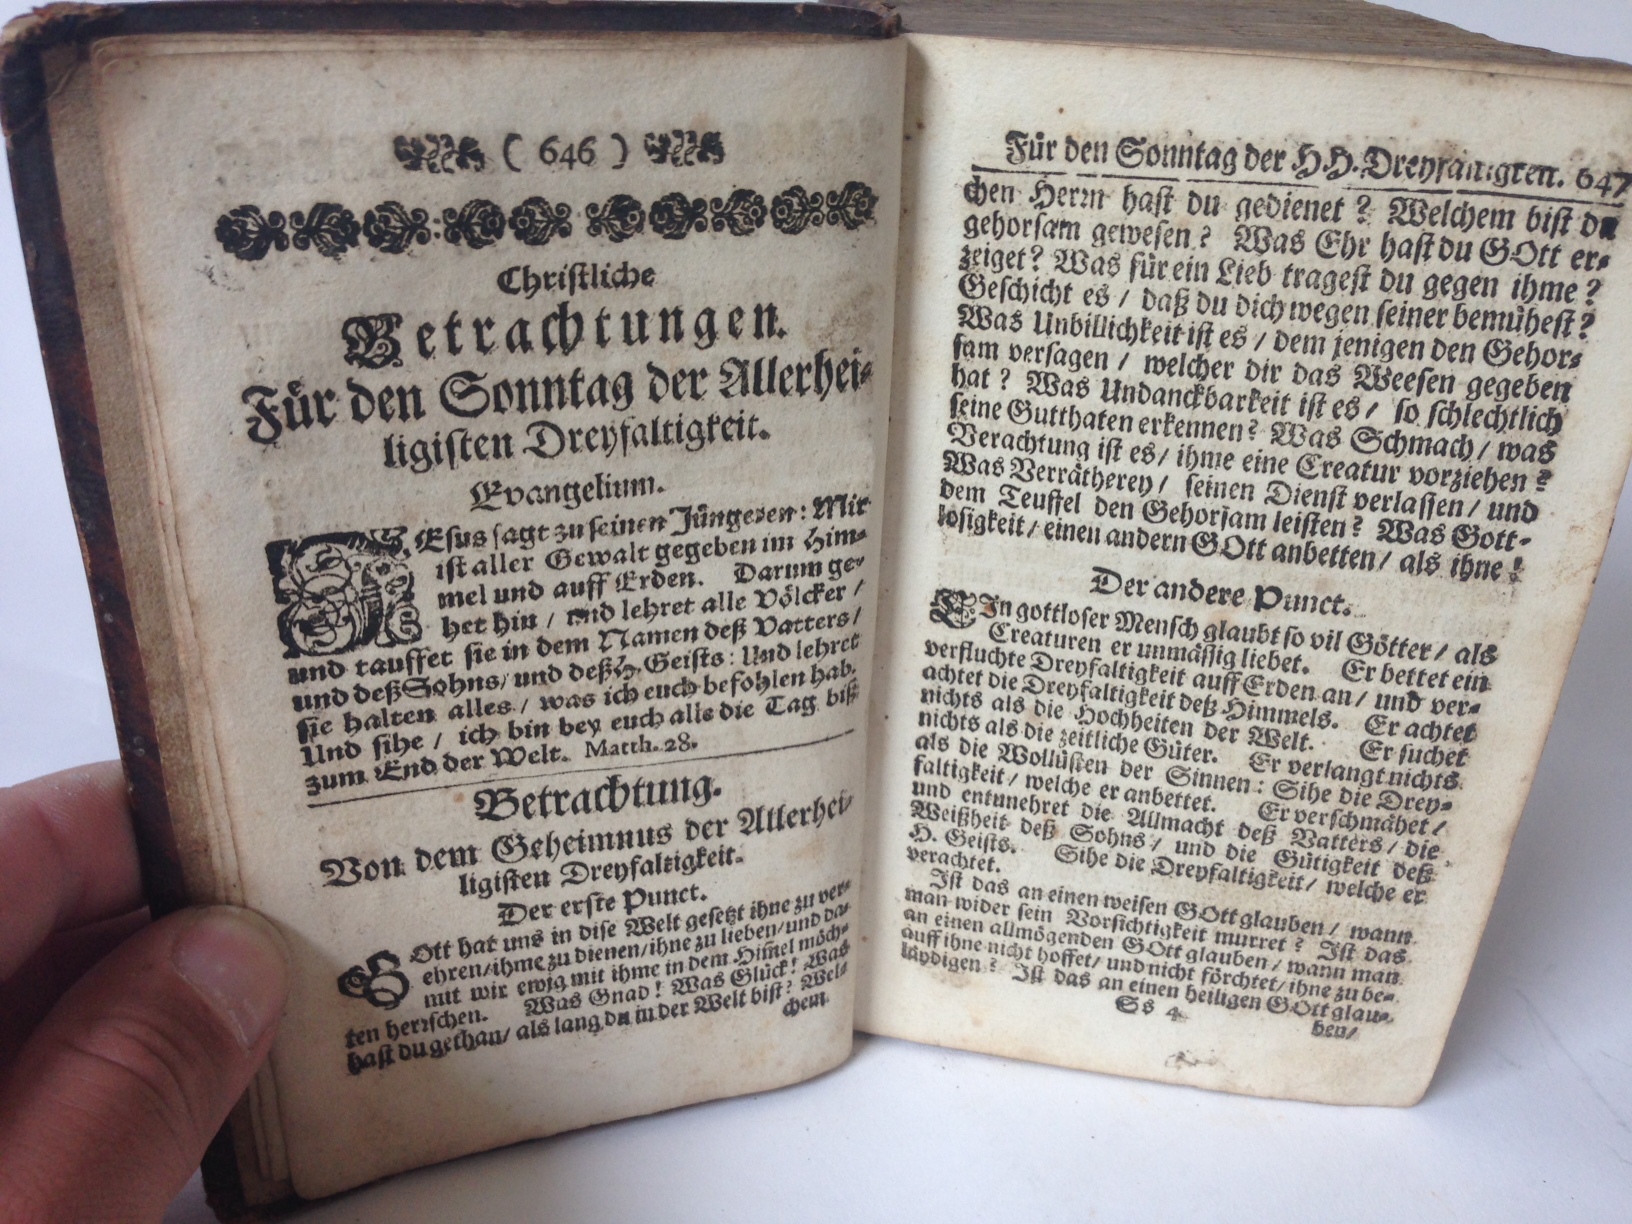 ( 646 )
Christliche
Betrachtungen.
Für den Sonntag der Allerhei-
ligisten Dreyfaltigkeit.
Evangelium.
JEsus sagt zu seinen Jüngeren: Mir
ist aller Gewalt gegeben im Him-
mel und auff Erden. Darum ge-
het hin / und lehret alle Völcker /
und tauffet sie in dem Namen deß Vatters /
und deß Sohns / und deß H. Geists: Und lehret
sie halten alles / was ich euch befohlen hab.
Und sihe / ich bin bey euch alle die Tag biß
zum End der Welt. Matth. 28.
Betrachtung.
Von dem Geheimnus der Allerhei-
ligisten Dreyfaltigkeit.
Der erste Punct.
GOtt hat uns in dise Welt gesetzt ihne zu ver-
ehren / ihme zu dienen / ihne zu lieben / und da-
mit wir ewig mit ihme in dem Him̃el möch-
ten herrschen. Was Gnad! Was Glück! Was
hast du gethan / als lang du in der Welt bist? Wel-
chem
Für den Sonntag der H.H. Dreyfaltigten. 647
chen Herrn hast du gedienet? Welchem bist du
gehorsam gewesen? Was Ehr hast du GOtt er-
zeiget? Was für ein Lieb tragest du gegen ihme?
Geschicht es / daß du dich wegen seiner bemühest?
Was Unbillichkeit ist es / dem jenigen den Gehor-
sam versagen / welcher dir das Weesen gegeben
hat? Was Undanckbarkeit ist es / so schlechtlich
seine Gutthaten erkennen? Was Schmach / was
Verachtung ist es / ihme eine Creatur vorziehen?
Was Verrätherey / seinen Dienst verlassen / und
dem Teuffel den Gehorsam leisten? Was Gott-
losigkeit / einen andern GOtt anbetten / als ihne!
Der andere Punct.
EIn gottloser Mensch glaubt so vil Götter / als
Creaturen er unmässig liebet. Er bettet ein
verfluchte Dreyfaltigkeit auff Erden an / und ver-
achtet die Dreyfaltigkeit deß Himmels. Er achtet
nichts als die Hochheiten der Welt. Er suchet
nichts als die zeitliche Güter. Er verlangt nichts
als die Wollüsten der Sinnen: Sihe die Drey-
faltigkeit / welche er anbettet. Er verschmähet /
und entunehret die Allmacht deß Vatters / die
Weißheit deß Sohns / und die Gütigkeit deß
H. Geists. Sihe die Dreyfaltigkeit / welche er
verachtet.
Ist das an einen weisen GOtt glauben / wann
man wider sein Vorsichtigkeit murret? Ist das
an einen allmögenden GOtt glauben / wann man
auff ihne nicht hoffet / und nicht förchtet / ihne zu be-
läydigen? Ist das an einen heiligen GOtt glau-
Ss 4
ben /